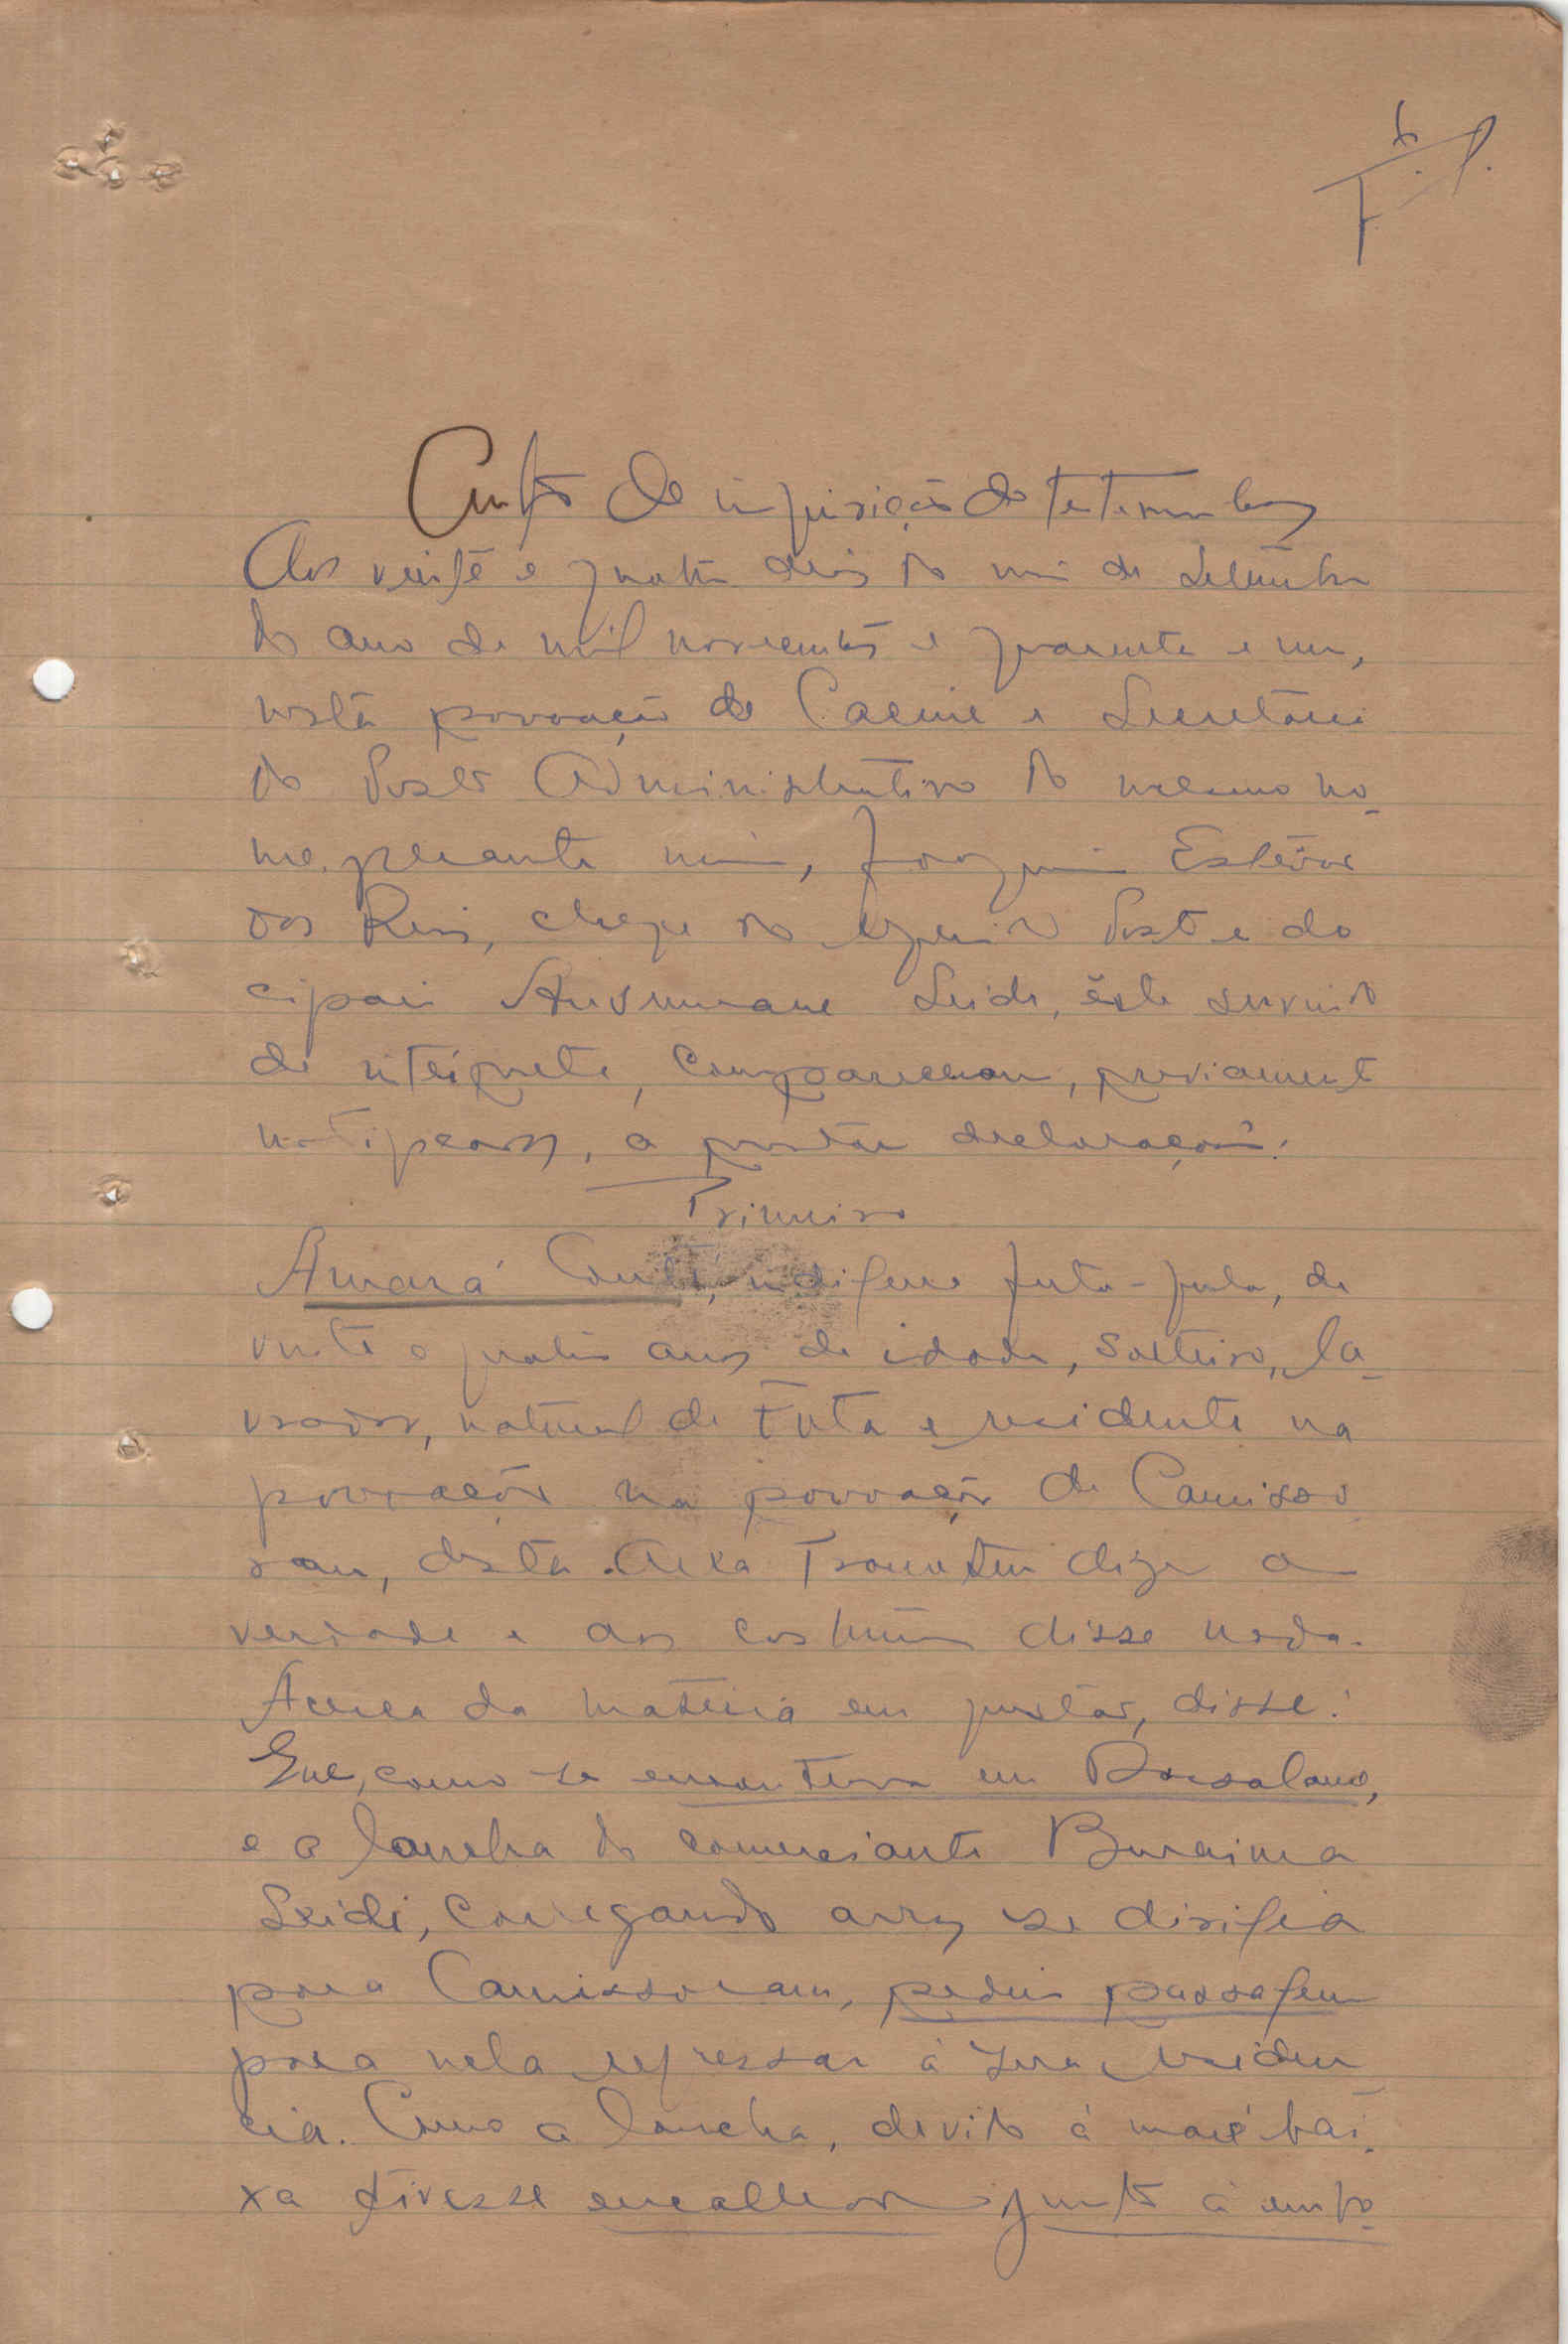 Auto de inquirição de testemunhas
Aos vinte e quatro dias do mês de Setembro
do ano de mil novecentos e quarenta e um,
nesta povoação de Cacine e Secretaria
do Posto Administrativo do mesmo no-
me, perante mim, Joaquim Esteves
dos Reis, chefe do referido Posto e do
cipai Seide, êste servindo
de intérprete, compareceram, previamente
notificados, a prestar declarações:
Primeiro
Amará Conté, indígena futa-fula, de
vinte e quatro anos de idade, solteiro, la-
vrador, natural de Futa e residente na
povoação na povoação de Camisso
ram, desta área. Prometeu dizer a
verdade e aos costumes disse nada.
Acerca da matéria em questão, disse:
Que, como se encontrava em
e a lancha do comerciante Buraima
Seidi, carregando arroz se dirigia
para Camissoram, pediu passagem
para nela regressar à sua residen
cia. Como a lancha, devido à maré bai-
xa tivesse encalhado junto à embo-